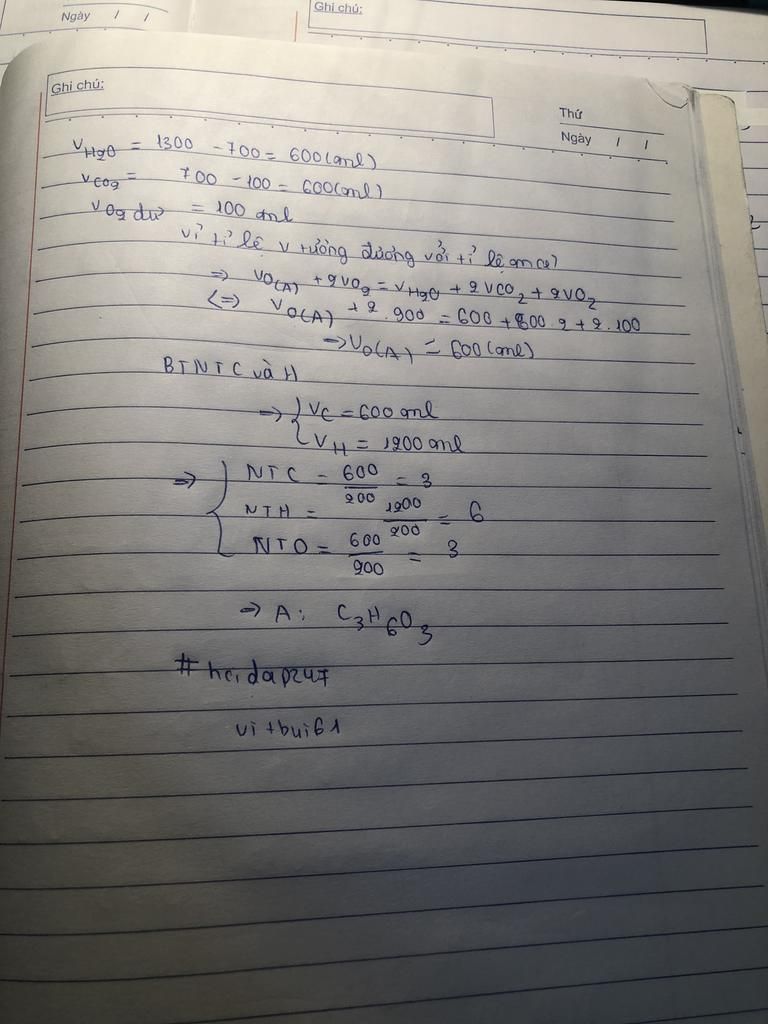 Ngày / /
Ghi chú:
Ghi chú:
Thứ
Ngày / /
V_H2O = 1300 - 700 = 600 (ml)
V_CO2 = 700 - 100 = 600 (ml)
V_O2 dư = 100 ml
Vì tỉ lệ V tương đương với tỉ lệ mol
=> V_O(A) + 2V_O2 = V_H2O + 2V_CO2 + 2V_O2
<=> V_O(A) + 2.900 = 600 + 600.2 + 2.100
=> V_O(A) = 600 (ml)
BTNT C và H
=> { V_C = 600 ml
V_H = 1200 ml
=> { NTC = 600/200 = 3
NTH = 1200/200 = 6
NTO = 600/200 = 3
=> A: C3H6O3
#hoidap247
vitbui61